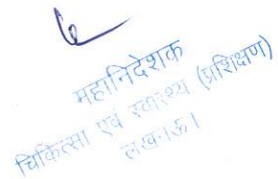 महानिदेशक
चिकित्सा एवं स्वास्थ्य (प्रशिक्षण)
लखनऊ।